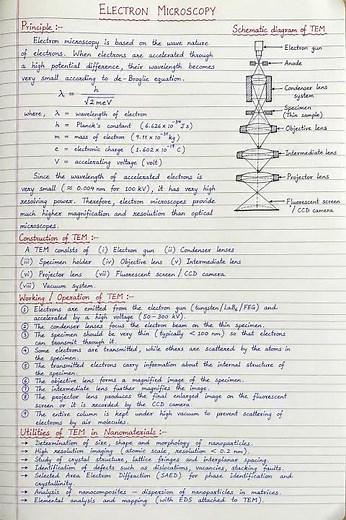 ELECTRON MICROSCOPY
Principle :-
Electron microscopy is based on the wave nature
of electrons. When electrons are accelerated through
a high potential difference, their wavelength becomes
very small according to de-Broglie equation.
λ = h / √2meV
where, λ = wavelength of electron
h = Planck's constant (6.626×10⁻³⁴ Js)
m = mass of electron (9.11×10⁻³¹ kg)
e = electronic charge (1.602×10⁻¹⁹ C)
V = accelerating voltage (volt)
Since the wavelength of accelerated electrons is
very small (≈ 0.004 nm for 100 kV), it has very high
resolving power. Therefore, electron microscopes provide
much higher magnification and resolution than optical
microscopes.
Schematic diagram of TEM
Electron gun
Anode
Condenser lens
system
Specimen
(Thin sample)
Objective lens
Intermediate lens
Projector lens
Fluorescent screen
/ CCD camera
Construction of TEM :-
A TEM consists of (i) Electron gun (ii) Condenser lenses
(iii) Specimen holder (iv) Objective lens (v) Intermediate lens
(vi) Projector lens (vii) Fluorescent screen / CCD camera
(viii) Vacuum system.
Working / Operation of TEM :-
① Electrons are emitted from the electron gun (tungsten/LaB₆/FEG) and
accelerated by a high voltage (50-300 kV).
② The condenser lenses focus the electron beam on the thin specimen.
③ The specimen should be very thin (typically <100 nm) so that electrons
can transmit through it.
④ Some electrons are transmitted, while others are scattered by the atoms in
the specimen.
⑤ The transmitted electrons carry information about the internal structure of
the specimen.
⑥ The objective lens forms a magnified image of the specimen.
⑦ The intermediate lens further magnifies the image.
⑧ The projector lens produces the final enlarged image on the fluorescent
screen or it is recorded by the CCD camera.
⑨ The entire column is kept under high vacuum to prevent scattering of
electrons by air molecules.
Utilities of TEM in Nanomaterials :-
→ Determination of size, shape and morphology of nanoparticles.
→ High resolution imaging (atomic scale, resolution < 0.2 nm).
→ Study of crystal structure, lattice fringes and interplanar spacing.
→ Identification of defects such as dislocations, vacancies, stacking faults.
→ Selected Area Electron Diffraction (SAED) for phase identification and
crystallinity.
→ Analysis of nanocomposites – dispersion of nanoparticles in matrices.
→ Elemental analysis and mapping (with EDS attached to TEM).